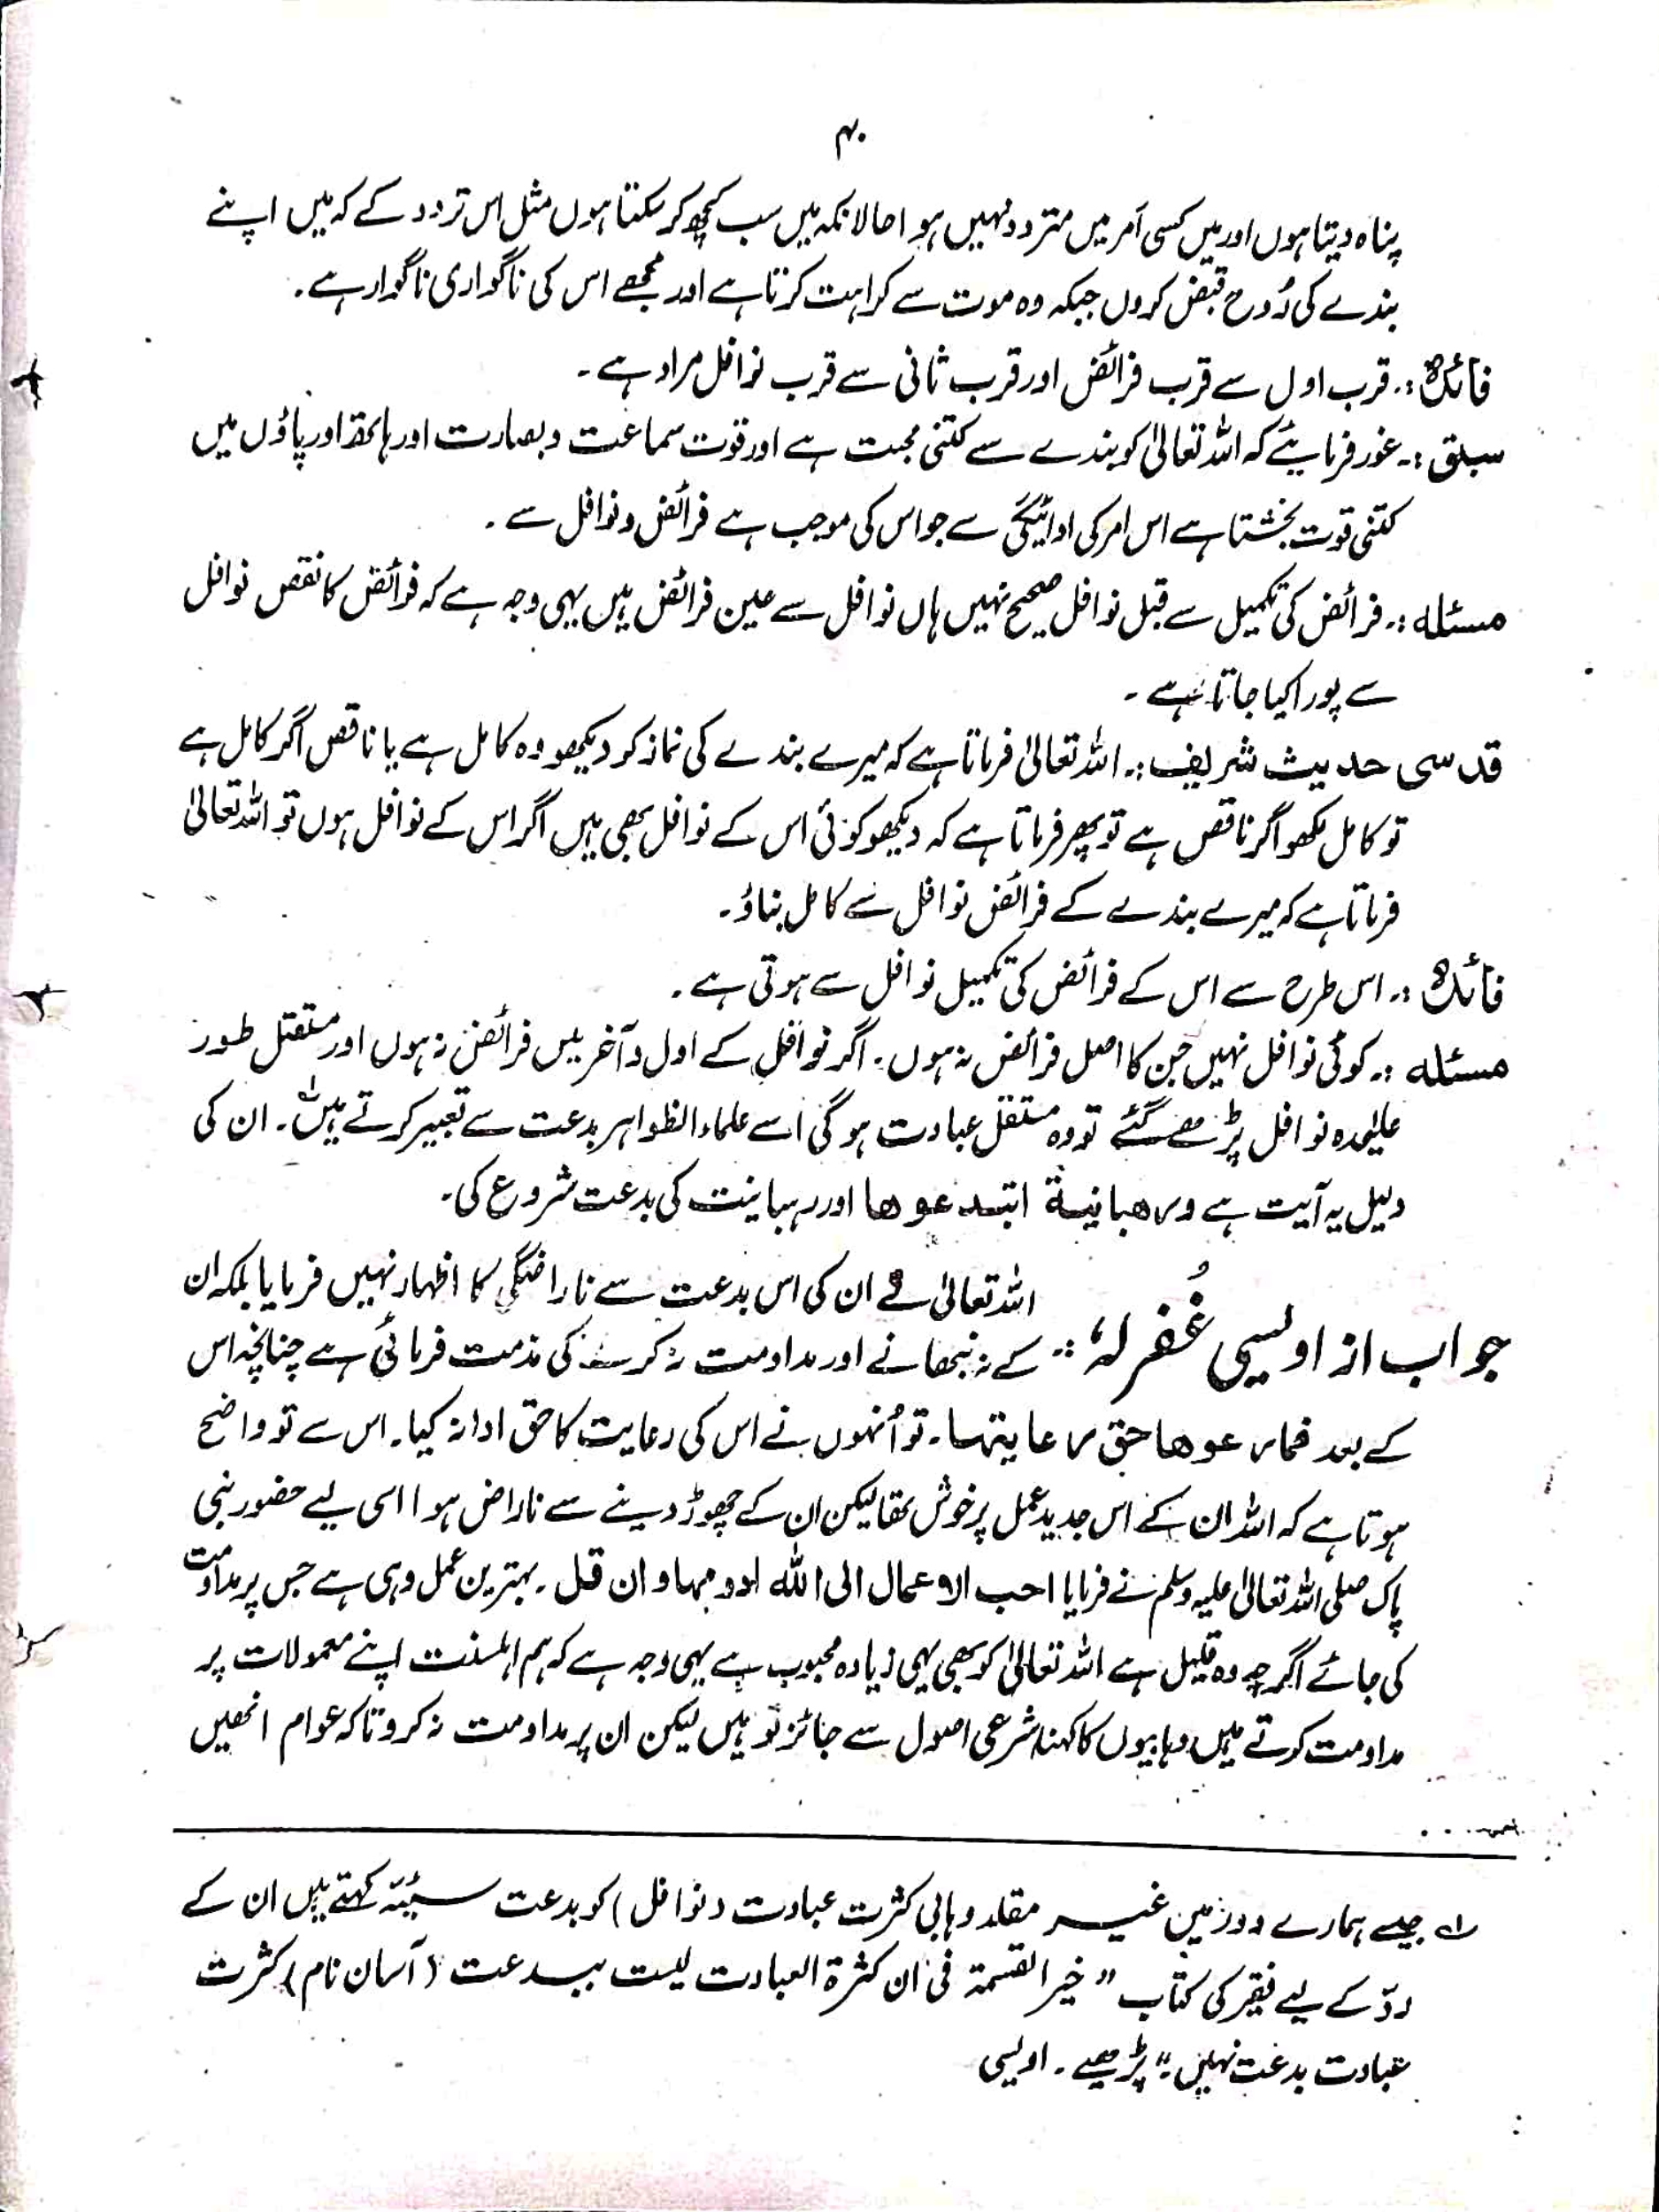 ۴۰
پناہ دیتا ہوں اور میں کسی اَمر میں متردد نہیں ہوا حالانکہ میں سب کچھ کر سکتا ہوں مثل اس تردد کے کہ میں اپنے
بندے کی رُوح قبض کروں جبکہ وہ موت سے کراہت کرتا ہے اور مجھے اس کی ناگواری ناگوار ہے۔
فائدہ :۔ قرب اول سے قرب فرائض اور قرب ثانی سے قرب نوافل مراد ہے ۔
سبق :۔ غور فرمایئے کہ اللہ تعالیٰ کو بندے سے کتنی محبت ہے اور قوت سماعت و بصارت اور ہاتھ اور پاؤں میں
کتنی قوت بخشتا ہے اس امر کی ادائیگی سے جو اس کی موجب ہے فرائض و نوافل سے ۔
مسئلہ :۔ فرائض کی تکمیل سے قبل نوافل صحیح نہیں ہاں نوافل سے عین فرائض ہیں یہی وجہ ہے کہ فرائض کا نقص نوافل
سے پورا کیا جاتا ہے ۔
قدسی حدیث شریف :۔ اللہ تعالیٰ فرماتا ہے کہ میرے بندے کی نماز کو دیکھو وہ کامل ہے یا ناقص اگر کامل ہے
تو کامل لکھو اگر ناقص ہے تو پھر فرماتا ہے کہ دیکھو کوئی اس کے نوافل بھی ہیں اگر اس کے نوافل ہوں تو اللہ تعالیٰ
فرماتا ہے کہ میرے بندے کے فرائض نوافل سے کامل بناؤ۔
فائدہ :۔ اس طرح سے اس کے فرائض کی تکمیل نوافل سے ہوتی ہے ۔
مسئلہ :۔ کوئی نوافل نہیں جن کا اصل فرائض نہ ہوں ۔ اگر نوافل کے اول و آخر میں فرائض نہ ہوں اور مستقل طور
علیحدہ نوافل پڑھے گئے تو وہ مستقل عبادت ہو گی اسے علماء الظواہر بدعت سے تعبیر کرتے ہیں۔ ان کی
دلیل یہ آیت ہے ورھبانیۃ ابتدعوھا اور رہبانیت کی بدعت شروع کی۔
جواب از اویسی غُفرلہٗ :۔ اللہ تعالیٰ نے ان کی اس بدعت سے ناراضگی کا اظہار نہیں فرمایا بلکہ ان
کے نہ نبھانے اور مداومت نہ کرنے کی مذمت فرمائی ہے چنانچہ اس
کے بعد فمارعوھا حق رعایتہا۔ تو اُنہوں نے اس کی رعایت کا حق ادا نہ کیا۔ اس سے تو واضح
ہوتا ہے کہ اللہ ان کے اس جدید عمل پر خوش تھا لیکن ان کے چھوڑ دینے سے ناراض ہوا اسی لیے حضور نبی
پاک صلی اللہ تعالیٰ علیہ وسلم نے فرمایا احب الاعمال الی اللہ ادومہا و ان قل ۔ بہترین عمل وہی ہے جس پر مداومت
کی جائے اگرچہ وہ قلیل ہے اللہ تعالیٰ کو بھی یہی زیادہ محبوب ہے یہی وجہ ہے کہ ہم اہلسنت اپنے معمولات پر
مداومت کرتے ہیں وہابیوں کا کہنا شرعی اصول سے جائز تو ہیں لیکن ان پر مداومت نہ کرو تاکہ عوام انھیں
لہ جیسے ہمارے دور میں غیر مقلد وہابی کثرت عبادت (نوافل) کو بدعت سیئہ کہتے ہیں ان کے
ردّ کے لیے فقیر کی کتاب "خیر القسمۃ فی ان کثرۃ العبادت لیست ببدعت (آسان نام) کثرت
عبادت بدعت نہیں"۔ پڑھیے ۔ اویسی